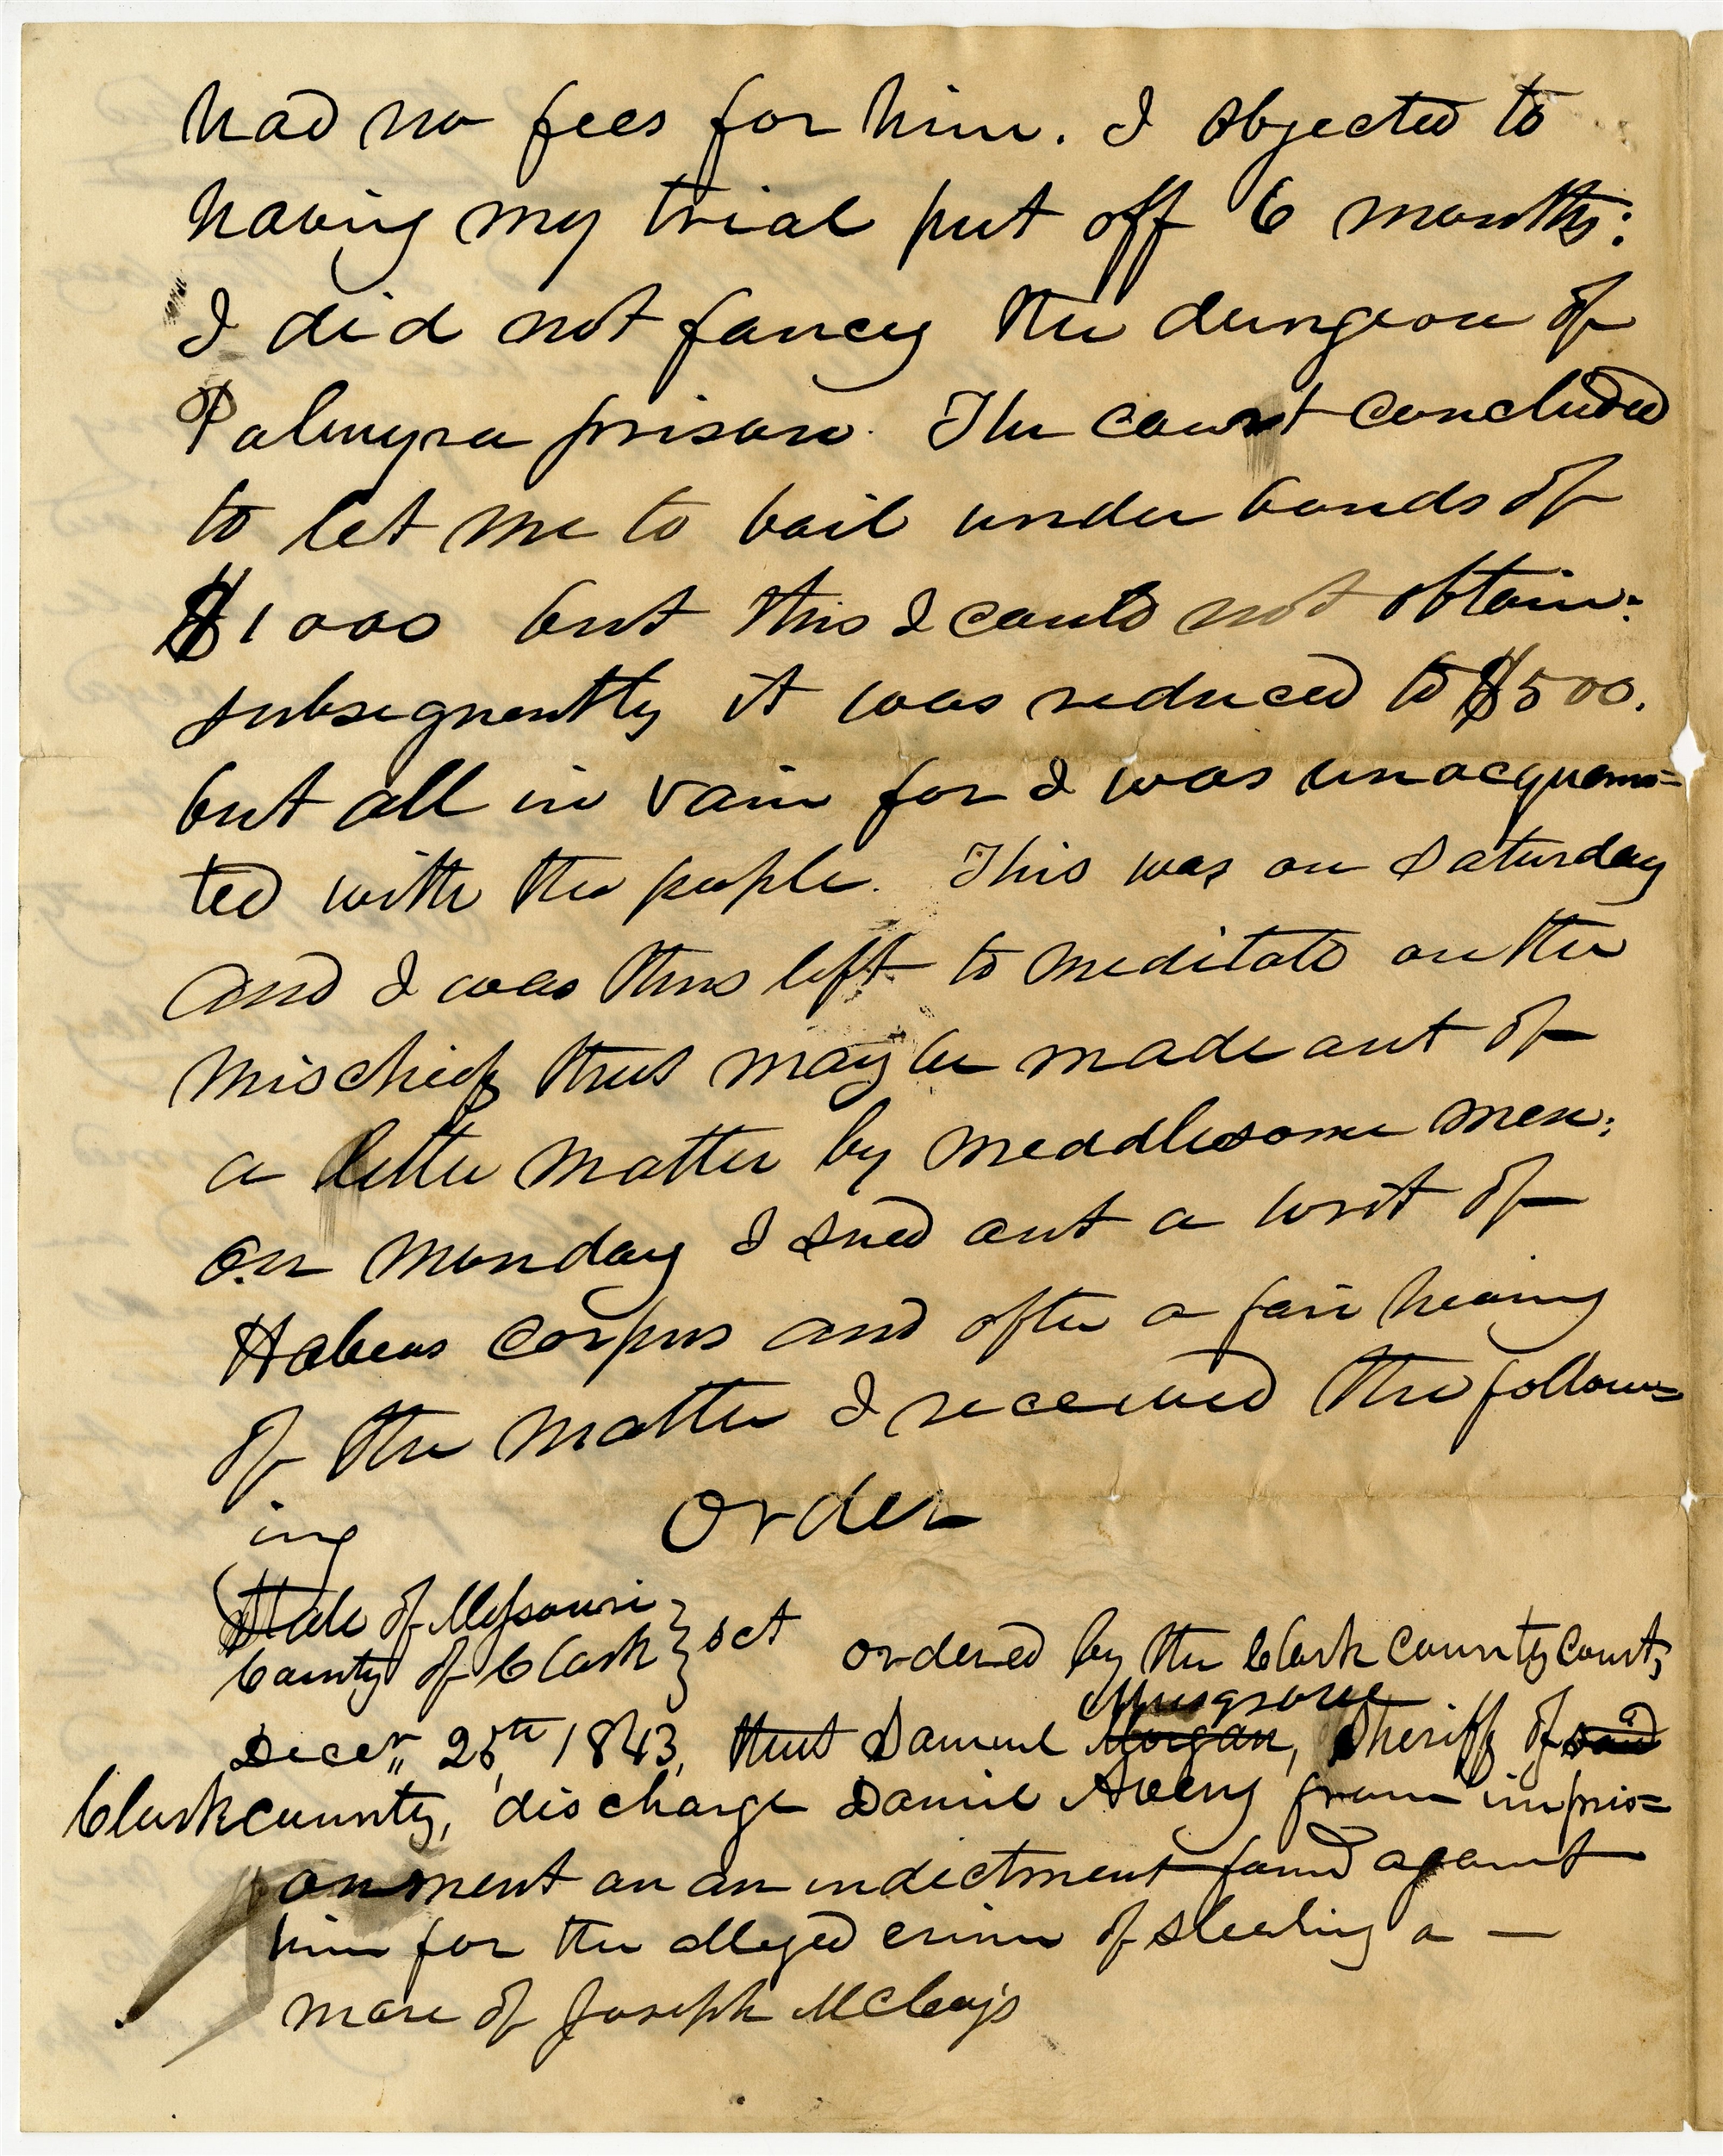 had no fees for him. I objected to
having my trial put off 6 months:
I did not fancy the dungeon of
Palmyra prison. The court concluded
to let me to bail under bonds of
$1000 but this I could not obtain:
subsequently it was reduced to $500.
but all in vain for I was unacquain=
ted with the people. This was on Saturday
and I was thus left to meditate on the
mischief that may be made out of
a little matter by meddlesome men:
on monday I sued out a writ of
Habeas corpus and after a fair hearing
of the matter I received the follow=
ing Order
State of Missouri
County of Clark } sct ordered by the Clark County Court;
Musgrove
Decer,, 25th, 1843, that Samuel Morgan, Sheriff of said
Clark county, discharge Daniel Avery from impris=
onment on an indictment found against
him for the alleged crime of stealing a —
mare of Joseph McCoy's